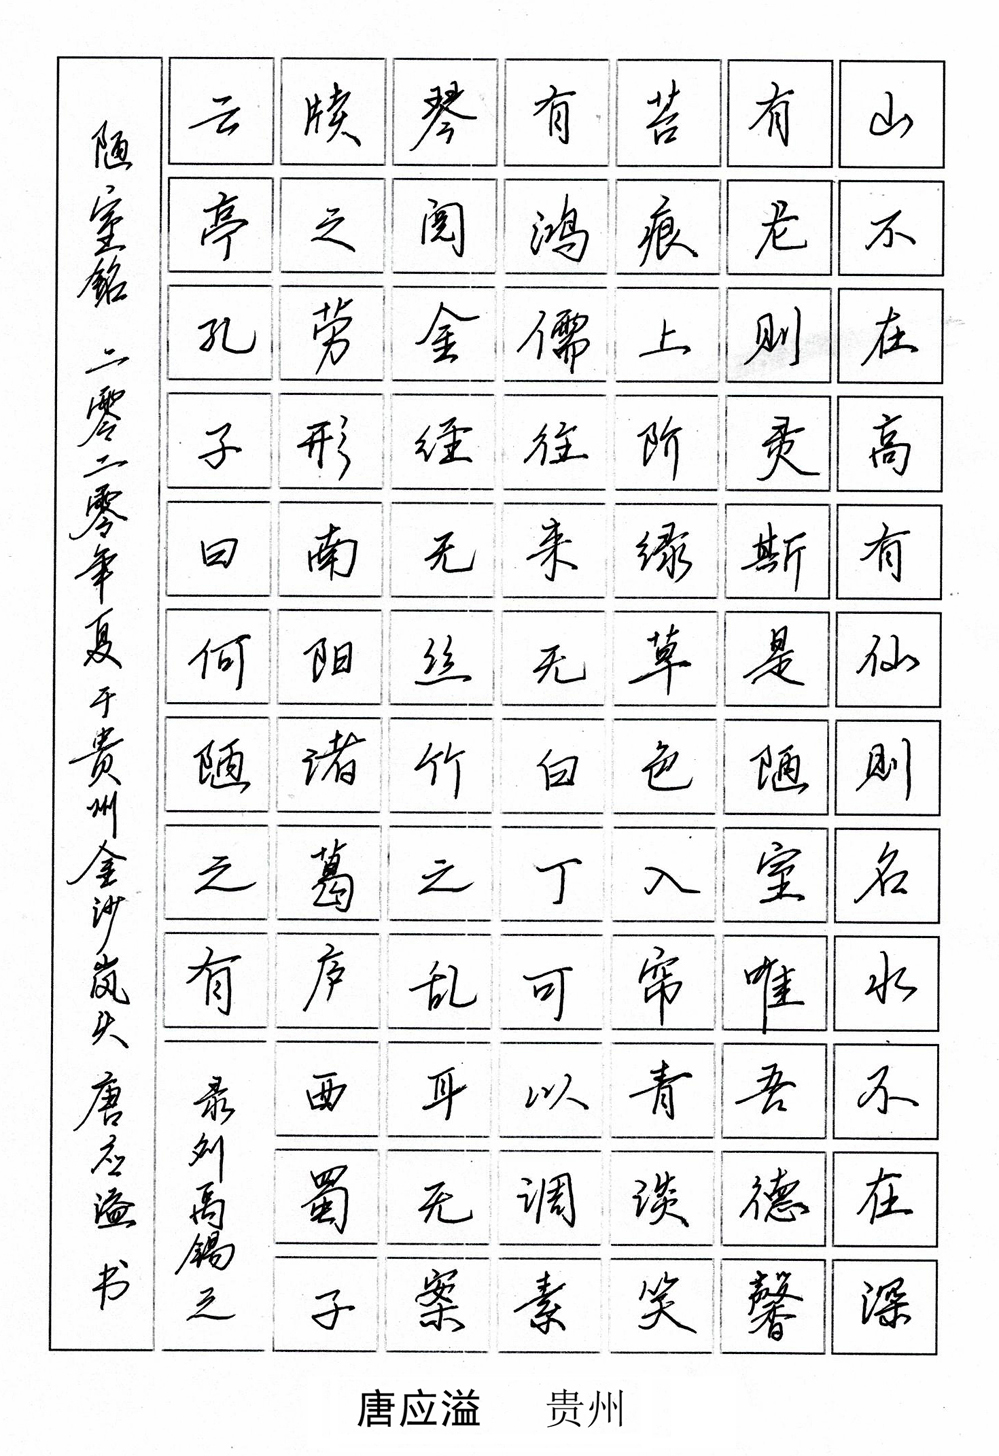 山不在高有仙则名水不在深
有龙则灵斯是陋室唯吾德馨
苔痕上阶绿草色入帘青谈笑
有鸿儒往来无白丁可以调素
琴阅金经无丝竹之乱耳无案
牍之劳形南阳诸葛庐西蜀子
云亭孔子曰何陋之有 录刘禹锡之
陋室铭 二零二零年夏于贵州金沙岚头 唐应溢 书
唐应溢 贵州